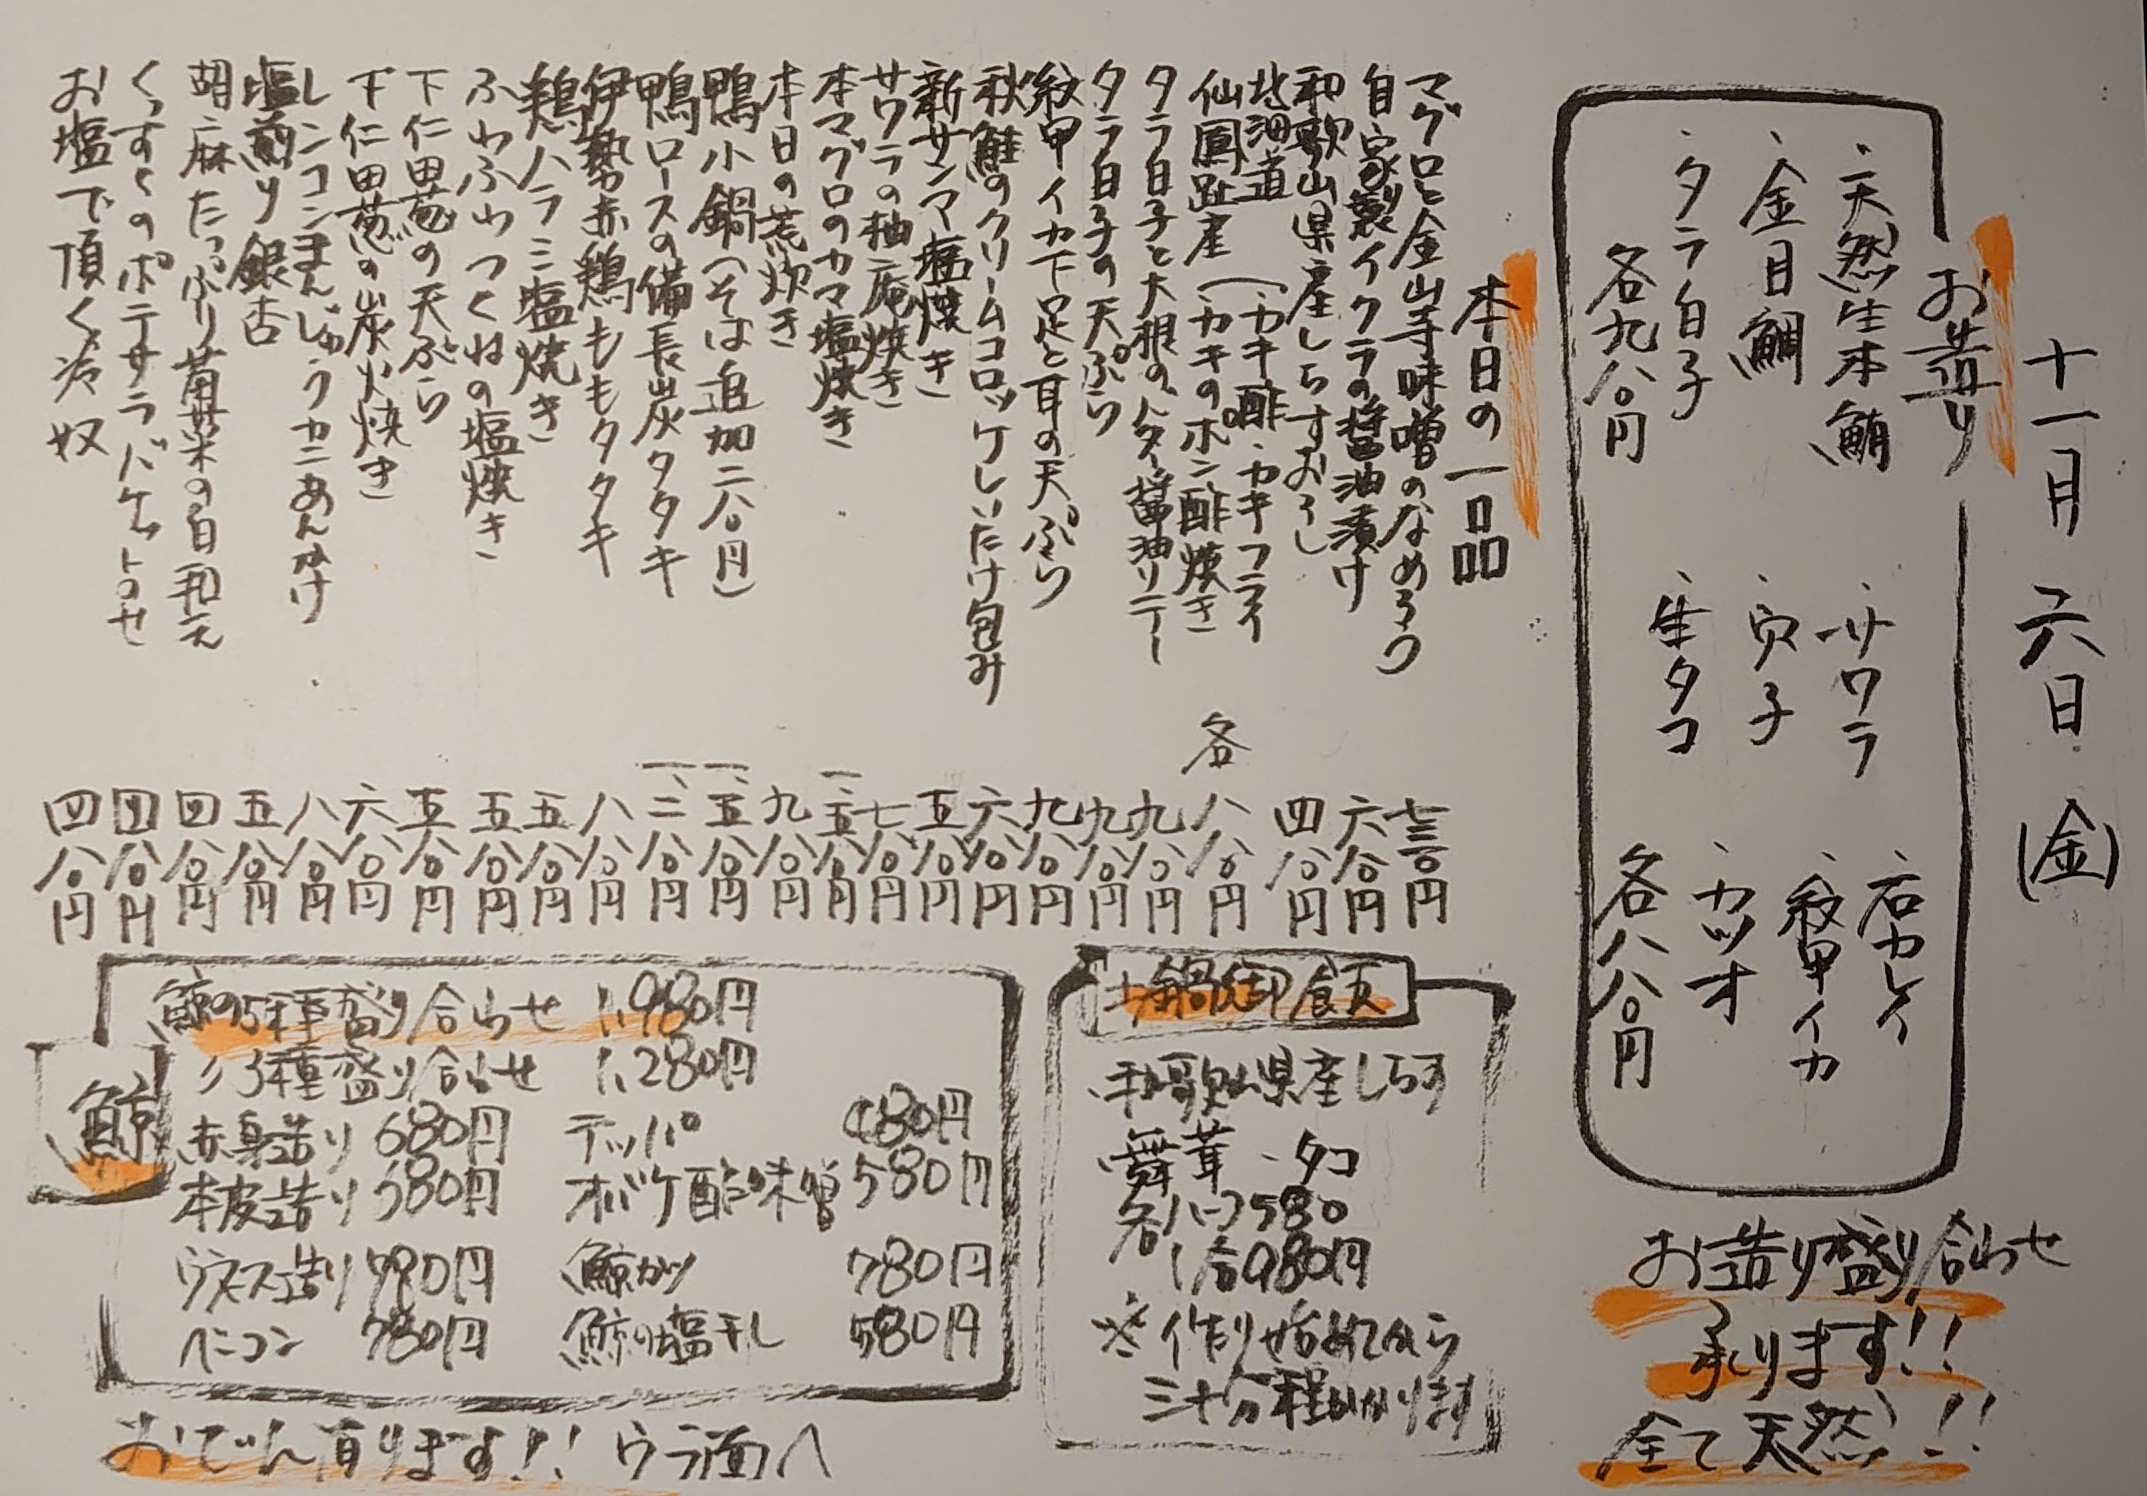 十一月六日(金)
お造り
・天然生本鮪
・金目鯛
・タラ白子
各九八〇円
・サワラ
・穴子
・生タコ
・石カレイ
・紋甲イカ
・カツオ
各八八〇円
お造り盛り合わせ
承ります!!
全て天然!!
本日の一品
マグロと金山寺味噌のなめろう 七三〇円
自家製イクラの醤油漬け 六八〇円
和歌山県産しらすおろし 四八〇円
北海道
仙鳳趾産(・カキ酢・カキフライ
・カキのポン酢焼き 各八八〇円
タラ白子と大根のバター醤油ソテー 九八〇円
タラ白子の天ぷら 九八〇円
紋甲イカ下足と耳の天ぷら 九八〇円
秋鮭のクリームコロッケしいたけ包み 六八〇円
新サンマ塩焼き 五八〇円
サワラの柚庵焼き 七八〇円
本マグロのカマ塩焼き 一、五八〇円
本日の荒炊き 九八〇円
鴨小鍋(そば追加二八〇円) 一、五八〇円
鴨ロースの備長炭タタキ 一、二八〇円
伊勢赤鶏ももタタキ 八八〇円
鶏ハラミ塩焼き 五八〇円
ふわふわつくねの塩焼き 五八〇円
下仁田葱の天ぷら 五八〇円
下仁田葱の炭火焼き 六八〇円
レンコンまんじゅうカニあんかけ 八八〇円
塩煎り銀杏 五八〇円
胡麻たっぷり菊菜の白和え 四八〇円
くんすくのポテサラバケット乗せ 四八〇円
お塩で頂く冷奴 四八〇円
土鍋御飯
・和歌山県産しらす
・舞茸 ・タコ
各ハーフ580
1合980円
※作り始めてから
三十分程かかります
鯨
鯨の5種盛り合わせ 1,980円
〃3種盛り合わせ 1,280円
赤身造り 680円 テッパ
本皮造り 580円 オバケ酢味噌 580円
ウネス造り 780円 鯨カツ 780円
ベーコン 780円 鯨の塩干し 580円
おでん有ります!! ウラ面へ